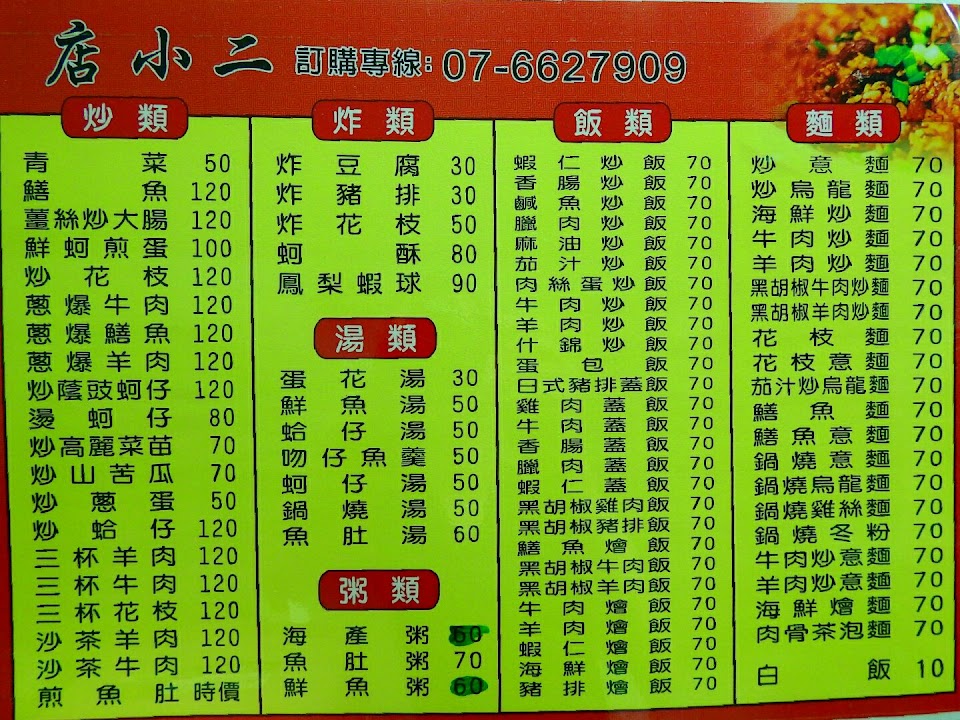 店小二 訂購專線:07-6627909
炒類
青菜 50
鱔魚 120
薑絲炒大腸 120
鮮蚵煎蛋 100
炒花枝 120
蔥爆牛肉 120
蔥爆鱔魚 120
蔥爆羊肉 120
炒蔭豉蚵仔 120
燙蚵仔 80
炒高麗菜苗 70
炒山苦瓜 70
炒蔥蛋 50
炒蛤仔 120
三杯羊肉 120
三杯牛肉 120
三杯花枝 120
沙茶羊肉 120
沙茶牛肉 120
煎魚肚 時價
炸類
炸豆腐 30
炸豬排 30
炸花枝 50
蚵酥 80
鳳梨蝦球 90
湯類
蛋花湯 30
鮮魚湯 50
蛤仔湯 50
吻仔魚羹 50
蚵仔湯 50
鍋燒湯 50
魚肚湯 60
粥類
海產粥 60
魚肚粥 70
鮮魚粥 60
飯類
蝦仁炒飯 70
香腸炒飯 70
鹹魚炒飯 70
臘肉炒飯 70
麻油炒飯 70
茄汁炒飯 70
肉絲蛋炒飯 70
牛肉炒飯 70
羊肉炒飯 70
什錦炒飯 70
蛋包飯 70
日式豬排蓋飯 70
雞肉蓋飯 70
牛肉蓋飯 70
香腸蓋飯 70
臘肉蓋飯 70
蝦仁蓋飯 70
黑胡椒雞肉飯 70
黑胡椒豬排飯 70
鱔魚燴飯 70
黑胡椒牛肉飯 70
黑胡椒羊肉飯 70
牛肉燴飯 70
羊肉燴飯 70
蝦仁燴飯 70
海鮮燴飯 70
豬排燴飯 70
麵類
炒意麵 70
炒烏龍麵 70
海鮮炒麵 70
牛肉炒麵 70
羊肉炒麵 70
黑胡椒牛肉炒麵 70
黑胡椒羊肉炒麵 70
花枝麵 70
花枝意麵 70
茄汁炒烏龍麵 70
鱔魚麵 70
鱔魚意麵 70
鍋燒意麵 70
鍋燒烏龍麵 70
鍋燒雞絲麵 70
鍋燒冬粉 70
牛肉炒意麵 70
羊肉炒意麵 70
海鮮燴麵 70
肉骨茶泡麵 70
白飯 10